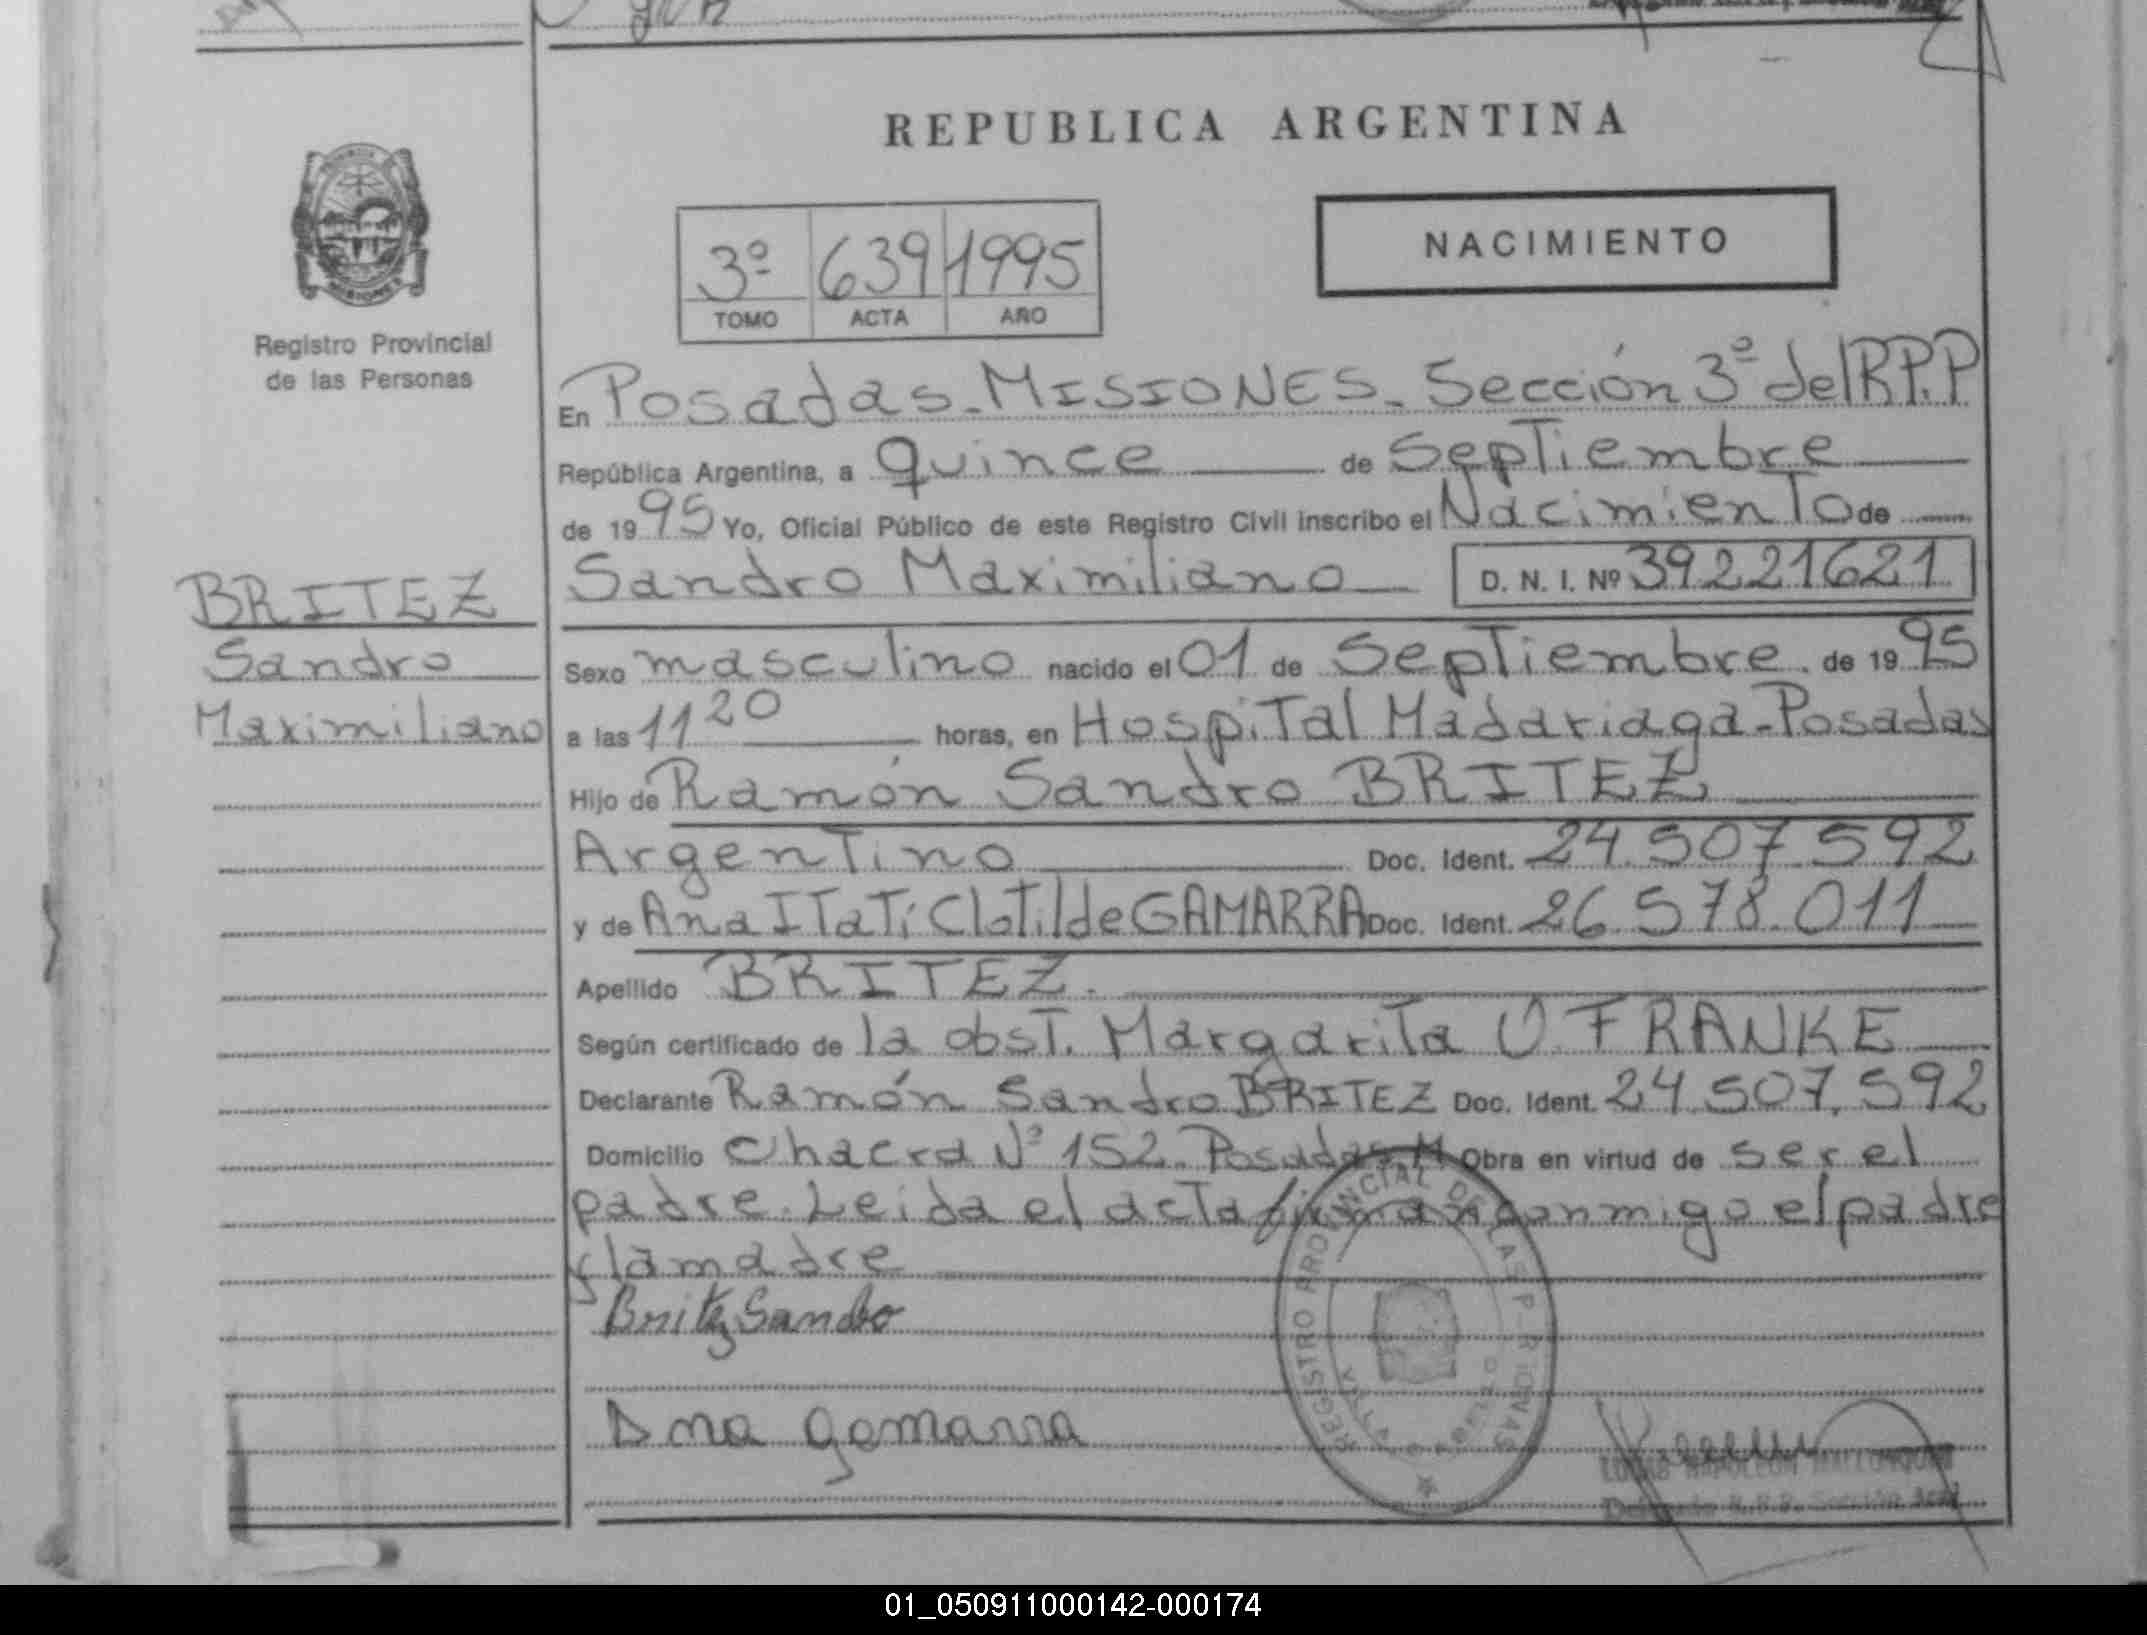 REPUBLICA ARGENTINA
3º 639 1995
TOMO ACTA AÑO
NACIMIENTO
Registro Provincial
de las Personas
BRITEZ
Sandro
Maximiliano
En Posadas-MISIONES. Sección 3º del R.P.P
República Argentina, a quince de Septiembre
de 1995 Yo, Oficial Público de este Registro Civil inscribo el Nacimiento de
Sandro Maximiliano D. N. I. Nº 39221621
Sexo masculino nacido el 01 de Septiembre de 1995
a las 11 20 horas, en Hospital Madariaga-Posadas
Hijo de Ramón Sandro BRITEZ
Argentino Doc. Ident. 24.507.592
y de Ana ITatí Clotilde GAMARRA Doc. Ident. 26.578.011
Apellido BRITEZ.
Según certificado de la obst. Margarita O. FRANKE
Declarante Ramón Sandro BRITEZ Doc. Ident. 24.507.592
Domicilio Chacra Nº 152. Posadas-M Obra en virtud de ser el
padre. Leida el acta firman conmigo el padre
y la madre
Britez Sandro
Ana gamarra
REGISTRO PROVINCIAL DE LAS
01_050911000142-000174